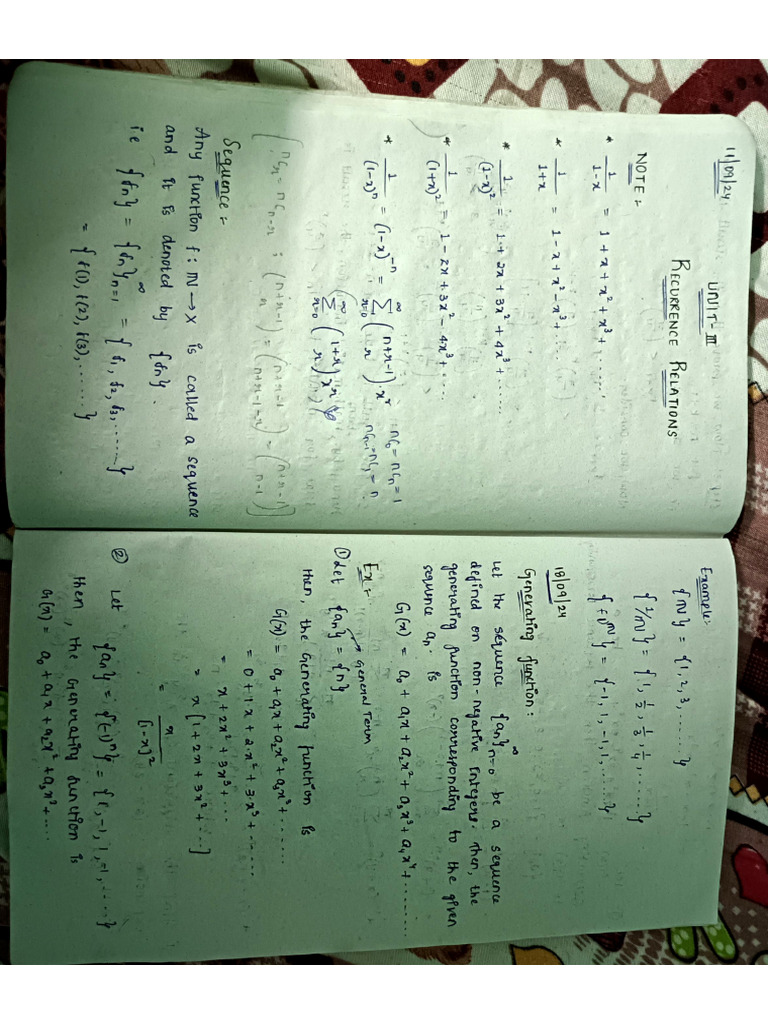 11/09/24
UNIT-III
RECURRENCE RELATIONS
NOTE:-
* 1/(1-x) = 1 + x + x² + x³ + ......
* 1/(1+x) = 1 - x + x² - x³ + ....
* 1/(1-x)² = 1 + 2x + 3x² + 4x³ + ......
* 1/(1+x)² = 1 - 2x + 3x² - 4x³ + ...
* 1/(1-x)ⁿ = (1-x)⁻ⁿ = ∞Σr=0 (n+r-1 r) xʳ
nC₀ = nCn = 1
nCn-1 = nC₁ = n
∞Σr=0
[nCr = nCn-r ; (n+r-1 r) = (n+r-1 n+r-1-r) = (n+r-1 n-1)]
Sequence:-
Any function f: IN → X is called a sequence
and it is denoted by {fn}.
i.e {fn} = {fn}∞n=1 = {f₁, f₂, f₃, ......}
= {f(1), f(2), f(3), .......}
Example:-
{N} = {1, 2, 3, ......}
{1/N} = {1, 1/2, 1/3, 1/4, ......}
{(-1)ᴺ} = {-1, 1, -1, 1, ......}
18/09/24
Generating function:
Let the sequence {an}∞n=0 be a sequence
defined on non-negative Integers. Then, the
generating function corresponding to the given
sequnce an. is
G(x) = a₀ + a₁x + a₂x² + a₃x³ + a₄x⁴ + ........
Ex:-
General Term
① Let {an} = {n},
then, the Generating function is
G(x) = a₀ + a₁x + a₂x² + a₃x³ + ......
= 0 + 1·x + 2·x² + 3·x³ + ......
= x + 2x² + 3x³ + ...
= x [1 + 2x + 3x² + ...]
= x/(1-x)²
② Let {an} = {(-1)ⁿ} = {1, -1, 1, -1, ....}
then, the Generating function is
G(x) = a₀ + a₁x + a₂x² + a₃x³ + ....